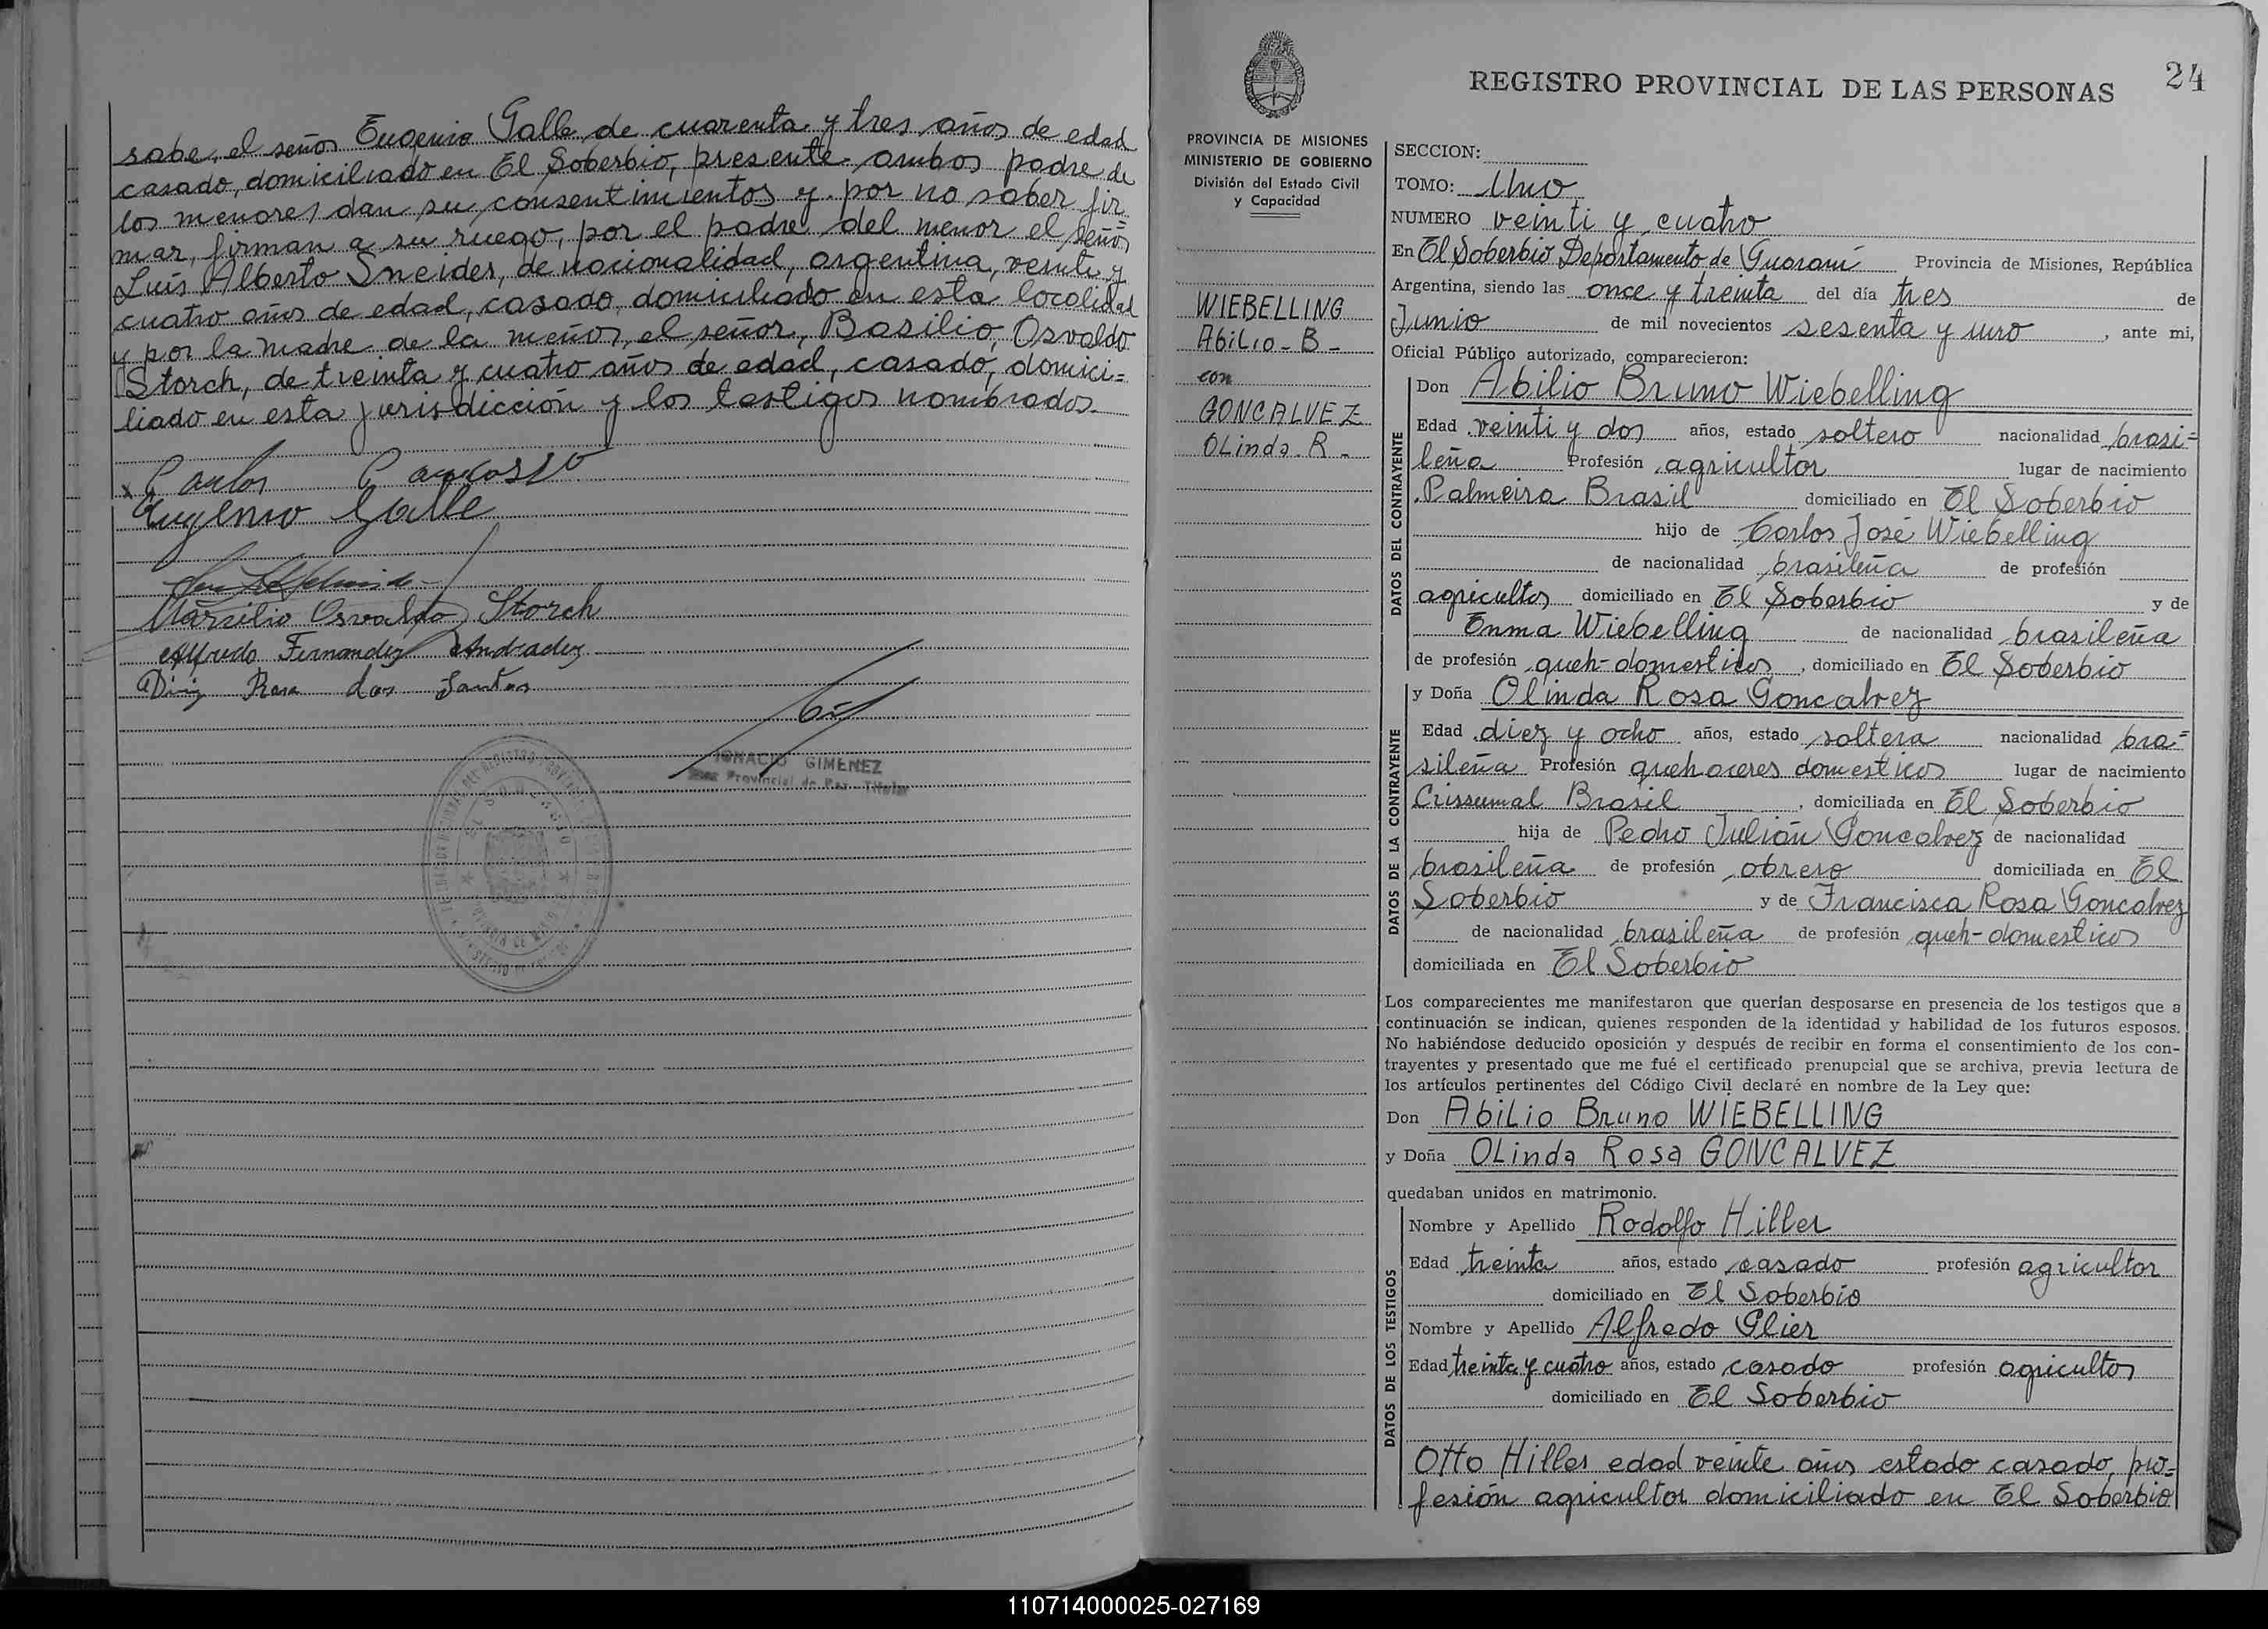 sabe, el señor Eugenio Galle de cuarenta y tres años de edad
casado, domiciliado en El Soberbio, presente ambos padre de
los menores dan su consentimientos y por no saber fir=
mar, firman a su ruego, por el padre del menor el señor
Luis Alberto Sneider, de nacionalidad, argentina, veinte y
cuatro años de edad, casado, domiciliado en esta localidad
y por la madre de la menor, el señor, Basilio, Osvaldo
Storch, de treinta y cuatro años de edad, casado, domici=
liado en esta jurisdicción y los testigos nombrados.
x Carlos Cardosso
Eugenio Galle
Marsilio Osvaldo Storch
Alfredo Fernandez Andradez
Rosa dos Santos
IGNACIO GIMENEZ
Juez Provincial de Paz Titular
24
REGISTRO PROVINCIAL DE LAS PERSONAS
PROVINCIA DE MISIONES
MINISTERIO DE GOBIERNO
División del Estado Civil
y Capacidad
WIEBELLING
Abilio - B -
con
GONCALVEZ
Olinda. R -
SECCION:
TOMO: Uno
NUMERO veinti y cuatro
En El Soberbio Departamento de Guarani Provincia de Misiones, República
Argentina, siendo las once y treinta del día tres de
Junio de mil novecientos sesenta y uno, ante mi,
Oficial Público autorizado, comparecieron:
DATOS DEL CONTRAYENTE
Don Abilio Bruno Wiebelling
Edad veinti y dos años, estado soltero nacionalidad brasi=
leña Profesión agricultor lugar de nacimiento
Palmeira Brasil domiciliado en El Soberbio
hijo de Carlos José Wiebelling
de nacionalidad brasileña de profesión
agricultor domiciliado en El Soberbio y de
Enma Wiebelling de nacionalidad brasileña
de profesión queh-domesticos, domiciliado en El Soberbio
DATOS DE LA CONTRAYENTE
y Doña Olinda Rosa Goncalvez
Edad diez y ocho años, estado soltera nacionalidad bra=
sileña Profesión quehaceres domesticos lugar de nacimiento
Crissumal Brasil, domiciliada en El Soberbio
hija de Pedro Julián Goncalvez de nacionalidad
brasileña de profesión obrero domiciliada en El
Soberbio y de Francisca Rosa Goncalvez
de nacionalidad brasileña de profesión queh-domesticos
domiciliada en El Soberbio
Los comparecientes me manifestaron que querían desposarse en presencia de los testigos que a
continuación se indican, quienes responden de la identidad y habilidad de los futuros esposos.
No habiéndose deducido oposición y después de recibir en forma el consentimiento de los con-
trayentes y presentado que me fué el certificado prenupcial que se archiva, previa lectura de
los artículos pertinentes del Código Civil declaré en nombre de la Ley que:
Don Abilio Bruno WIEBELLING
y Doña Olinda Rosa GONCALVEZ
quedaban unidos en matrimonio.
DATOS DE LOS TESTIGOS
Nombre y Apellido Rodolfo Hiller
Edad treinta años, estado casado profesión agricultor
domiciliado en El Soberbio
Nombre y Apellido Alfredo Glier
Edad treinta y cuatro años, estado casado profesión agricultor
domiciliado en El Soberbio
Otto Hiller edad veinte años estado casado, pro=
fesión agricultor domiciliado en El Soberbio
110714000025-027169